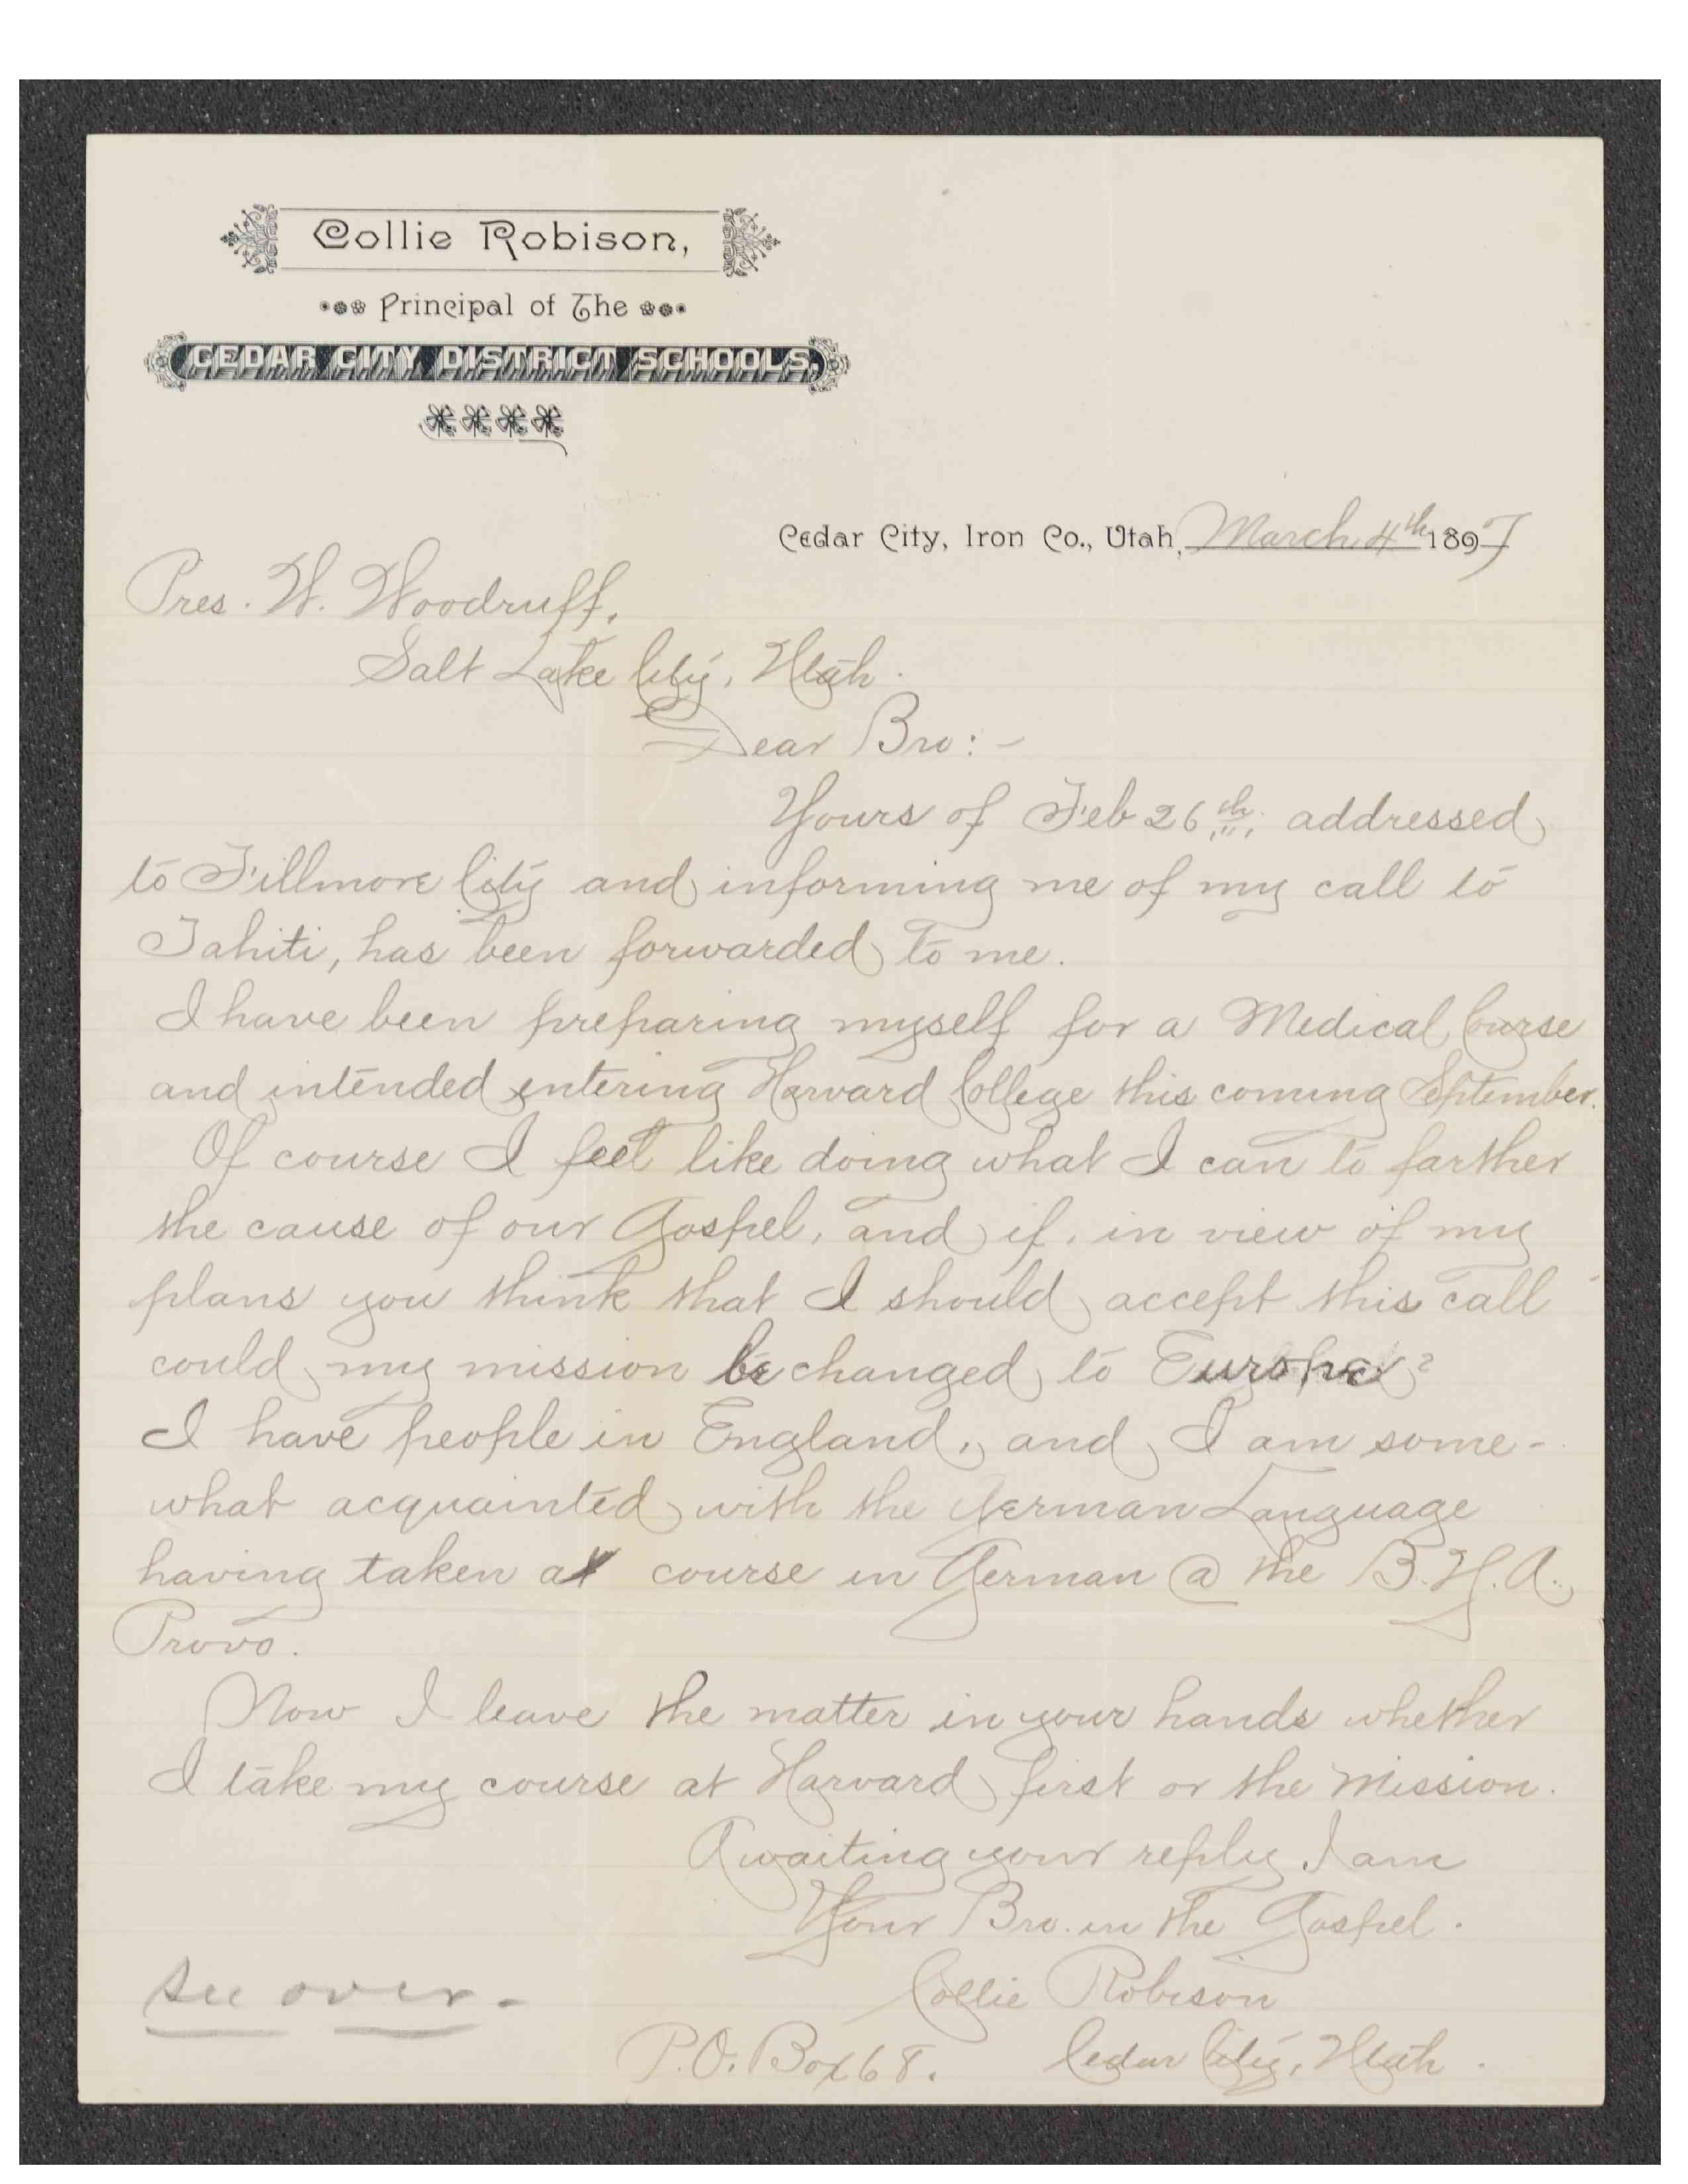 Collie Robison,
Principal of The
CEDAR CITY DISTRICT SCHOOLS.
Cedar City, Iron Co., Utah, March 4th 1897
Pres. W. Woodruff,
Salt Lake City, Utah.
Dear Bro:-
Yours of Feb 26th. addressed
to Fillmore City and informing me of my call to
Tahiti, has been forwarded to me.
I have been preparing myself for a Medical Course
and intended entering Harvard College this coming September.
Of course I feel like doing what I can to farther
the cause of our Gospel, and if, in view of my
plans you think that I should accept this call
could my mission be changed to Europe?
I have people in England, and I am some-
what acquainted with the German Language
having taken a course in German @ the B.Y.A.
Provo.
Now I leave the matter in your hands whether
I take my course at Harvard first or the Mission.
Awaiting your reply I am
Your Bro. in the Gospel.
Collie Robison
see over-
P.O. Box 68. Cedar City, Utah.